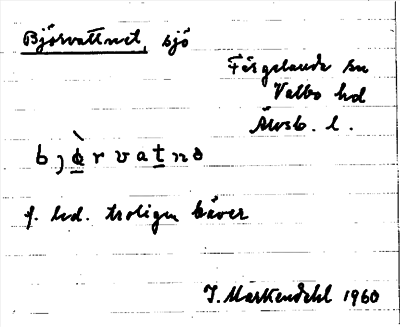 Björvattnet, sjö
Färgelanda sn
Valbo hd
Älvsb. l.
bjø̱̀rvaṯnə
f. led. troligen bäver
J. Markendahl 1960